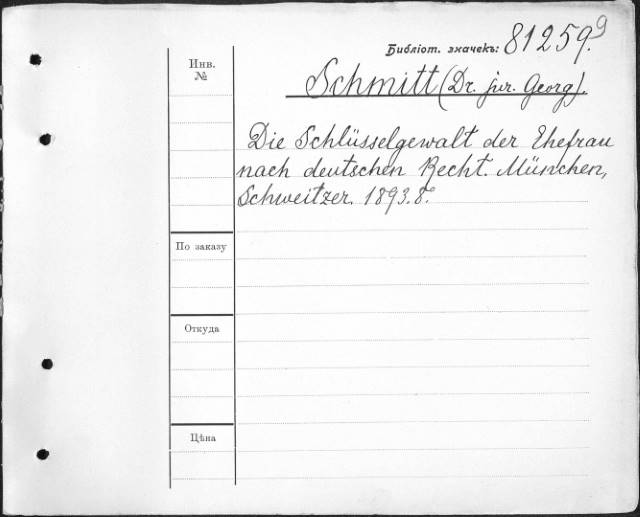 Библіот. значекъ: 81259.9
Инв.
№
Schmitt (Dr. jur. Georg).
Die Schlüsselgewalt der Ehefrau
nach deutschen Recht. München,
Schweitzer. 1893. 8.°
По заказу
Откуда
Цѣна